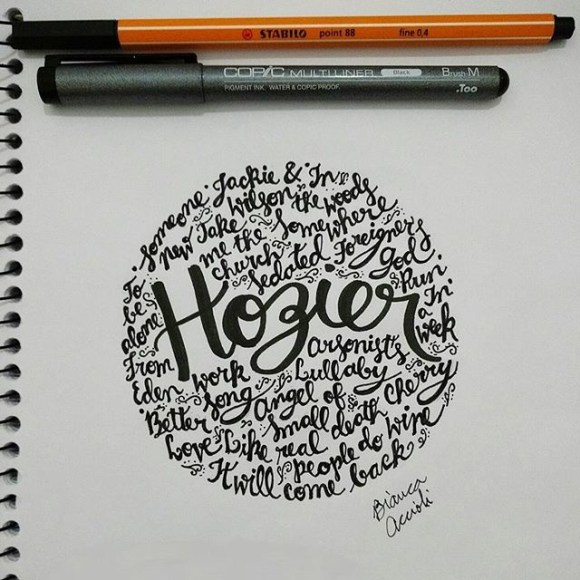 STABILO point 88 fine 0,4
COPIC MULTILINER Black Brush-M
PIGMENT INK WATER & COPIC PROOF .Too
Someone New
Jackie & Wilson
In the woods Somewhere
Take me the church
Sedated
Foreigner's God
To be alone
Hozier
Run
In a Week
From Eden
Work Song
Arsonist's Lullaby
Angel of Small death
Cherry wine
Better Love
Like real people do
It will come back
Bianca
Accioli